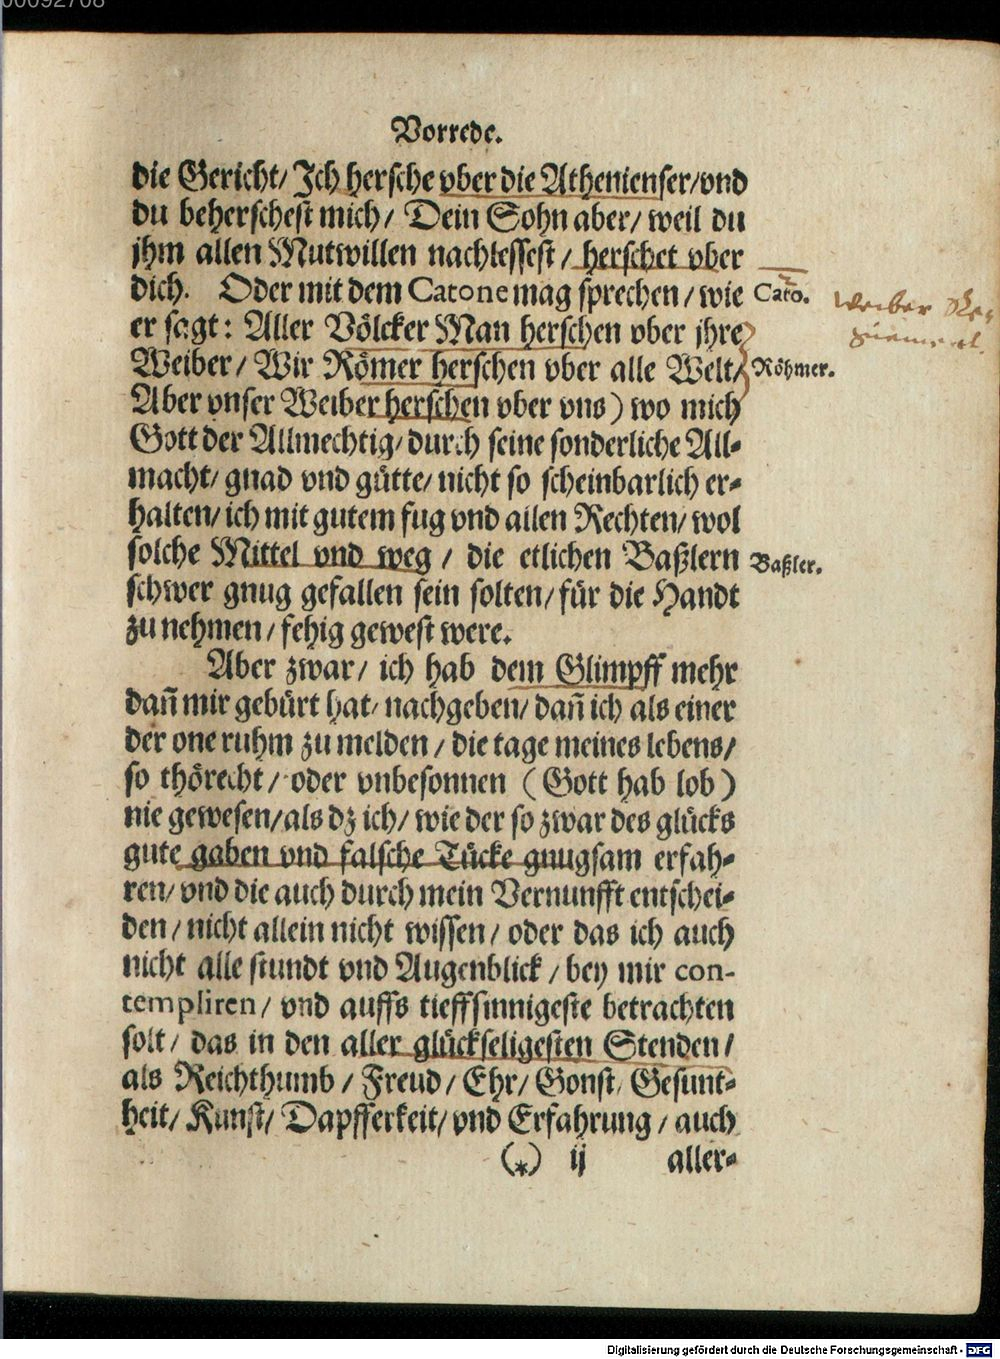 00092708
Vorrede.
die Gericht/ Ich hersche vber die Athenienser/vnd
du beherschest mich/ Dein Sohn aber/ weil du
jhm allen Mutwillen nachlessest / herschet vber
dich. Oder mit dem Catone mag sprechen / wie
Cato.
er sagt: Aller Völcker Man herschen vber jhre
Weiber / Wir Römer herschen vber alle Welt/
Röhmer.
Aber vnser Weiber herschen vber vns) wo mich
Gott der Allmechtig/ durch seine sonderliche All-
macht/ gnad vnd gütte/ nicht so scheinbarlich er-
halten/ ich mit gutem fug vnd allen Rechten/ wol
solche Mittel vnd weg / die etlichen Baßlern
Baßler.
schwer gnug gefallen sein solten/ für die Handt
zu nehmen / fehig gewest were.
Aber zwar/ ich hab dem Glimpff mehr
dañ mir gebürt hat/ nachgeben/ dañ ich als einer
der one ruhm zu melden / die tage meines lebens/
so thörecht / oder vnbesonnen (Gott hab lob)
nie gewesen/als dz ich/ wie der so zwar des glücks
gute gaben vnd falsche Tücke gnugsam erfah-
ren/ vnd die auch durch mein Vernunfft entschei-
den / nicht allein nicht wissen / oder das ich auch
nicht alle stundt vnd Augenblick / bey mir con-
templiren / vnd auffs tieffsinnigeste betrachten
solt / das in den aller glückseligesten Stenden /
als Reichthumb / Freud / Ehr/ Gonst/ Gesunt-
heit/ Kunst/ Dapfferkeit/ vnd Erfahrung / auch
(*) ij aller-
Weiber Re-
giement.
Digitalisierung gefördert durch die Deutsche Forschungsgemeinschaft - DFG